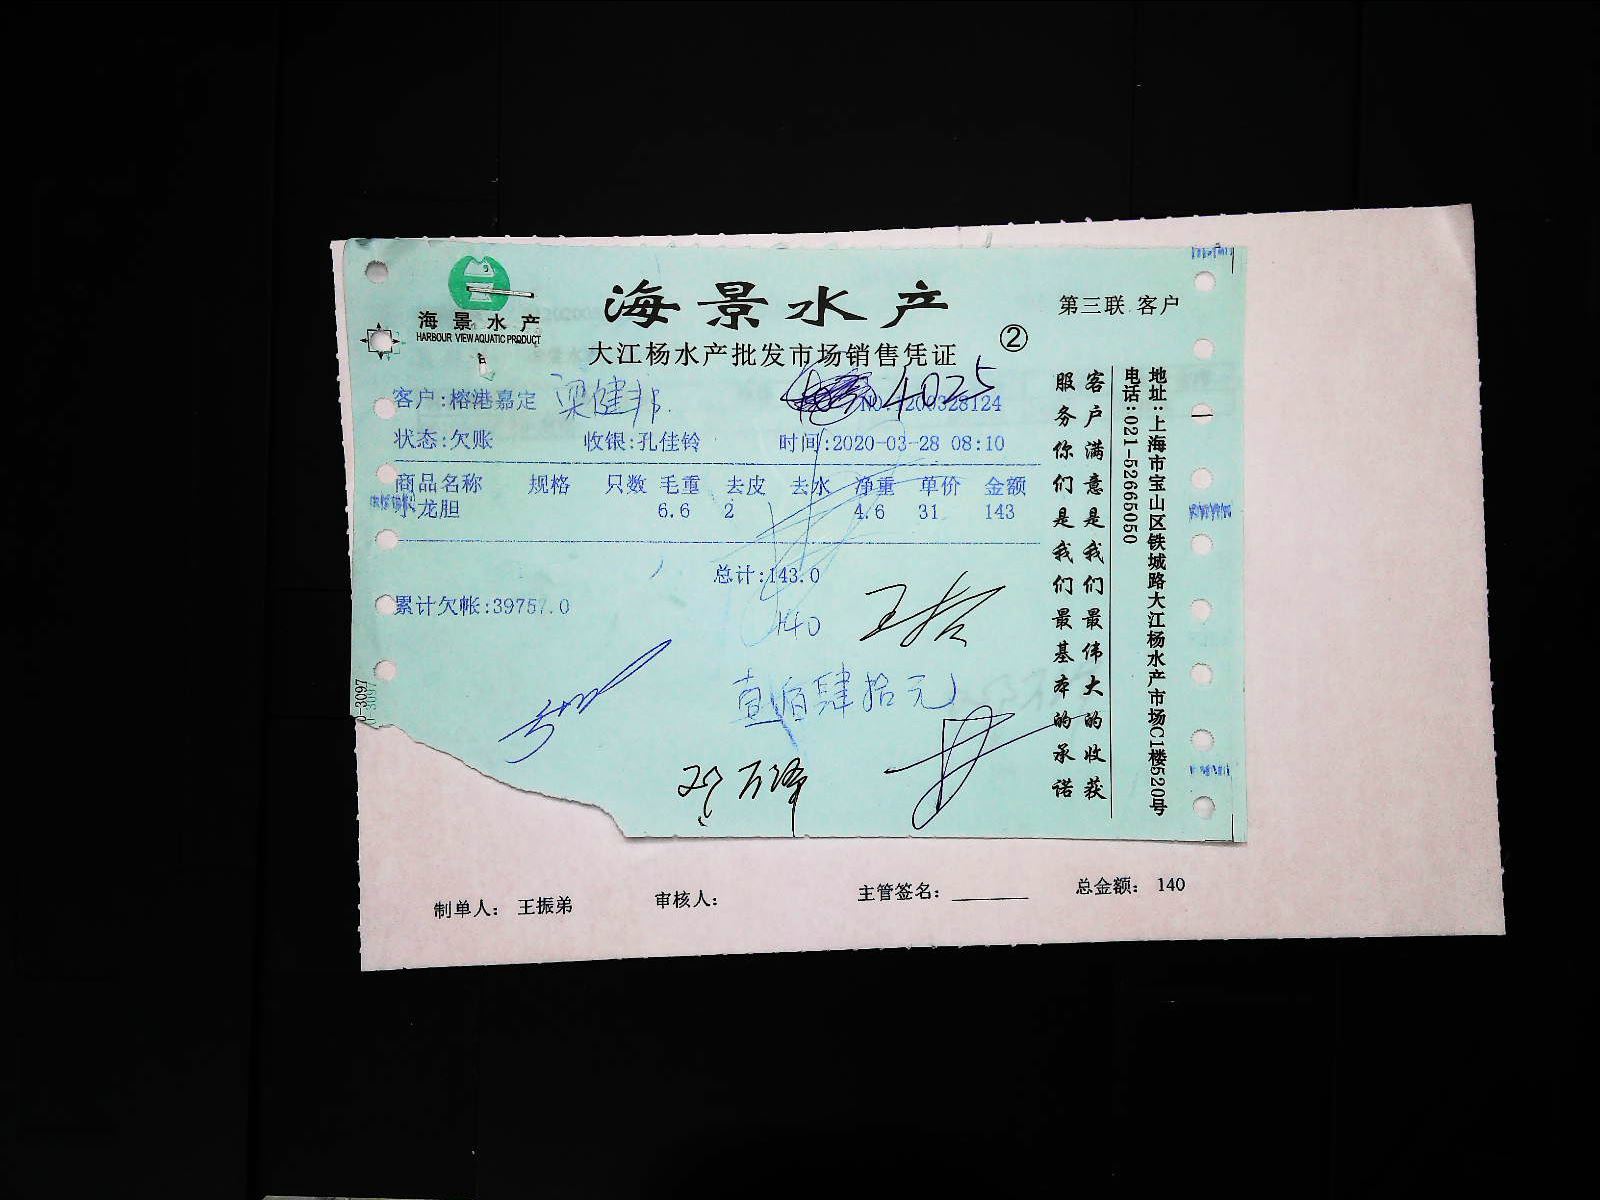 海景水产
HARBOUR VIEW AQUATIC PRODUCT
海景水产
大江杨水产批发市场销售凭证
②
第三联 客户
客户:榕港嘉定 梁健邦
4025
NO:200328124
状态:欠账 收银:孔佳铃 时间:2020-03-28 08:10
商品名称 规格 只数 毛重 去皮 去水 净重 单价 金额
小龙胆 6.6 2 4.6 31 143
总计:143.0
累计欠帐:39757.0
140
壹佰肆拾元
客户满意是我们最伟大的收获
服务你们是我们最基本的承诺
地址:上海市宝山区铁城路大江杨水产市场C1楼520号
电话:021-52665050
0-3097
制单人: 王振弟 审核人: 主管签名: 总金额: 140